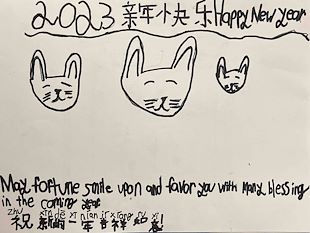 2023 亲年快乐 Happy New year
May fortune smile upon and favor you with many blessing
in the coming year
zhu xin de yi nian ji xiang ru yi
祝 新的一年吉祥如意!